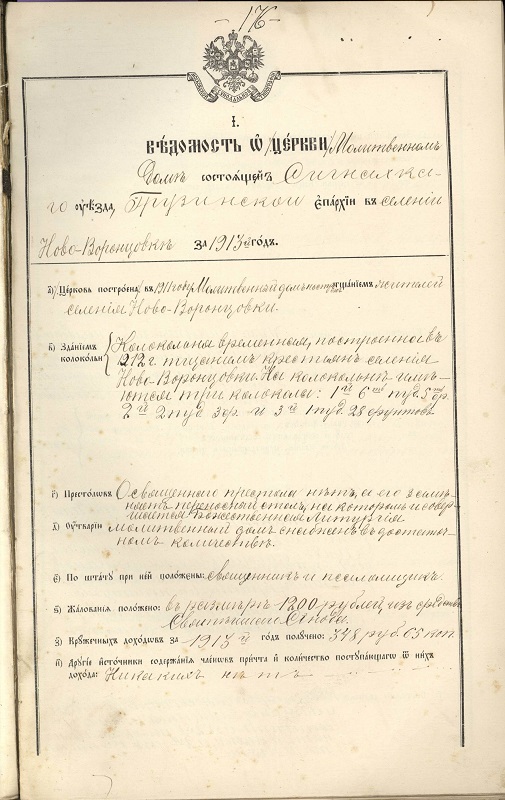 -176-
I.
Вѣдомость ѿ /церкви/ Молитвенномъ
Домѣ состоящей въ Сигнахска-
го оуѣзда, Грузинской епархіи въ селеніи
Ново-Воронцовкѣ за 1913й годъ.
а) Церковь построена въ 1911 году Молитвенный домъ тщаніемъ жителей
селенія Ново-Воронцовки.
в) Зданіемъ колокольня Колокольня временная, построена въ
1912 г. тщаніемъ крестьянъ селенія
Ново-Воронцовки. На колокольнѣ имѣ-
ются три колокола: 1й 6 пуд. 5 фр.
2й 2 пуд. 3 фр. и 3й 1 пуд. 28 фунтовъ
г) Престоловъ Освященнаго престола нѣтъ, а его замѣ-
няетъ переносный столъ, на которомъ и совер-
шается Божественная Литургія
д) Оутварїи молитвенный домъ снабженъ въ достаточ-
номъ количествѣ.
є) По штатꙋ при ней положены: священникъ и псаломщикъ.
ѕ) Жалованія положено: въ размѣрѣ 1200 рублей, изъ средствъ
Святѣйшаго Синода.
з) Крꙋжечныхъ доходовъ за 1913й годъ полꙋчено: 348 руб. 65 коп.
и) Дрꙋгіе источники содержанія членовъ причта и количество постꙋпающаго ѿ нихъ
дохода: Никакихъ нѣтъ